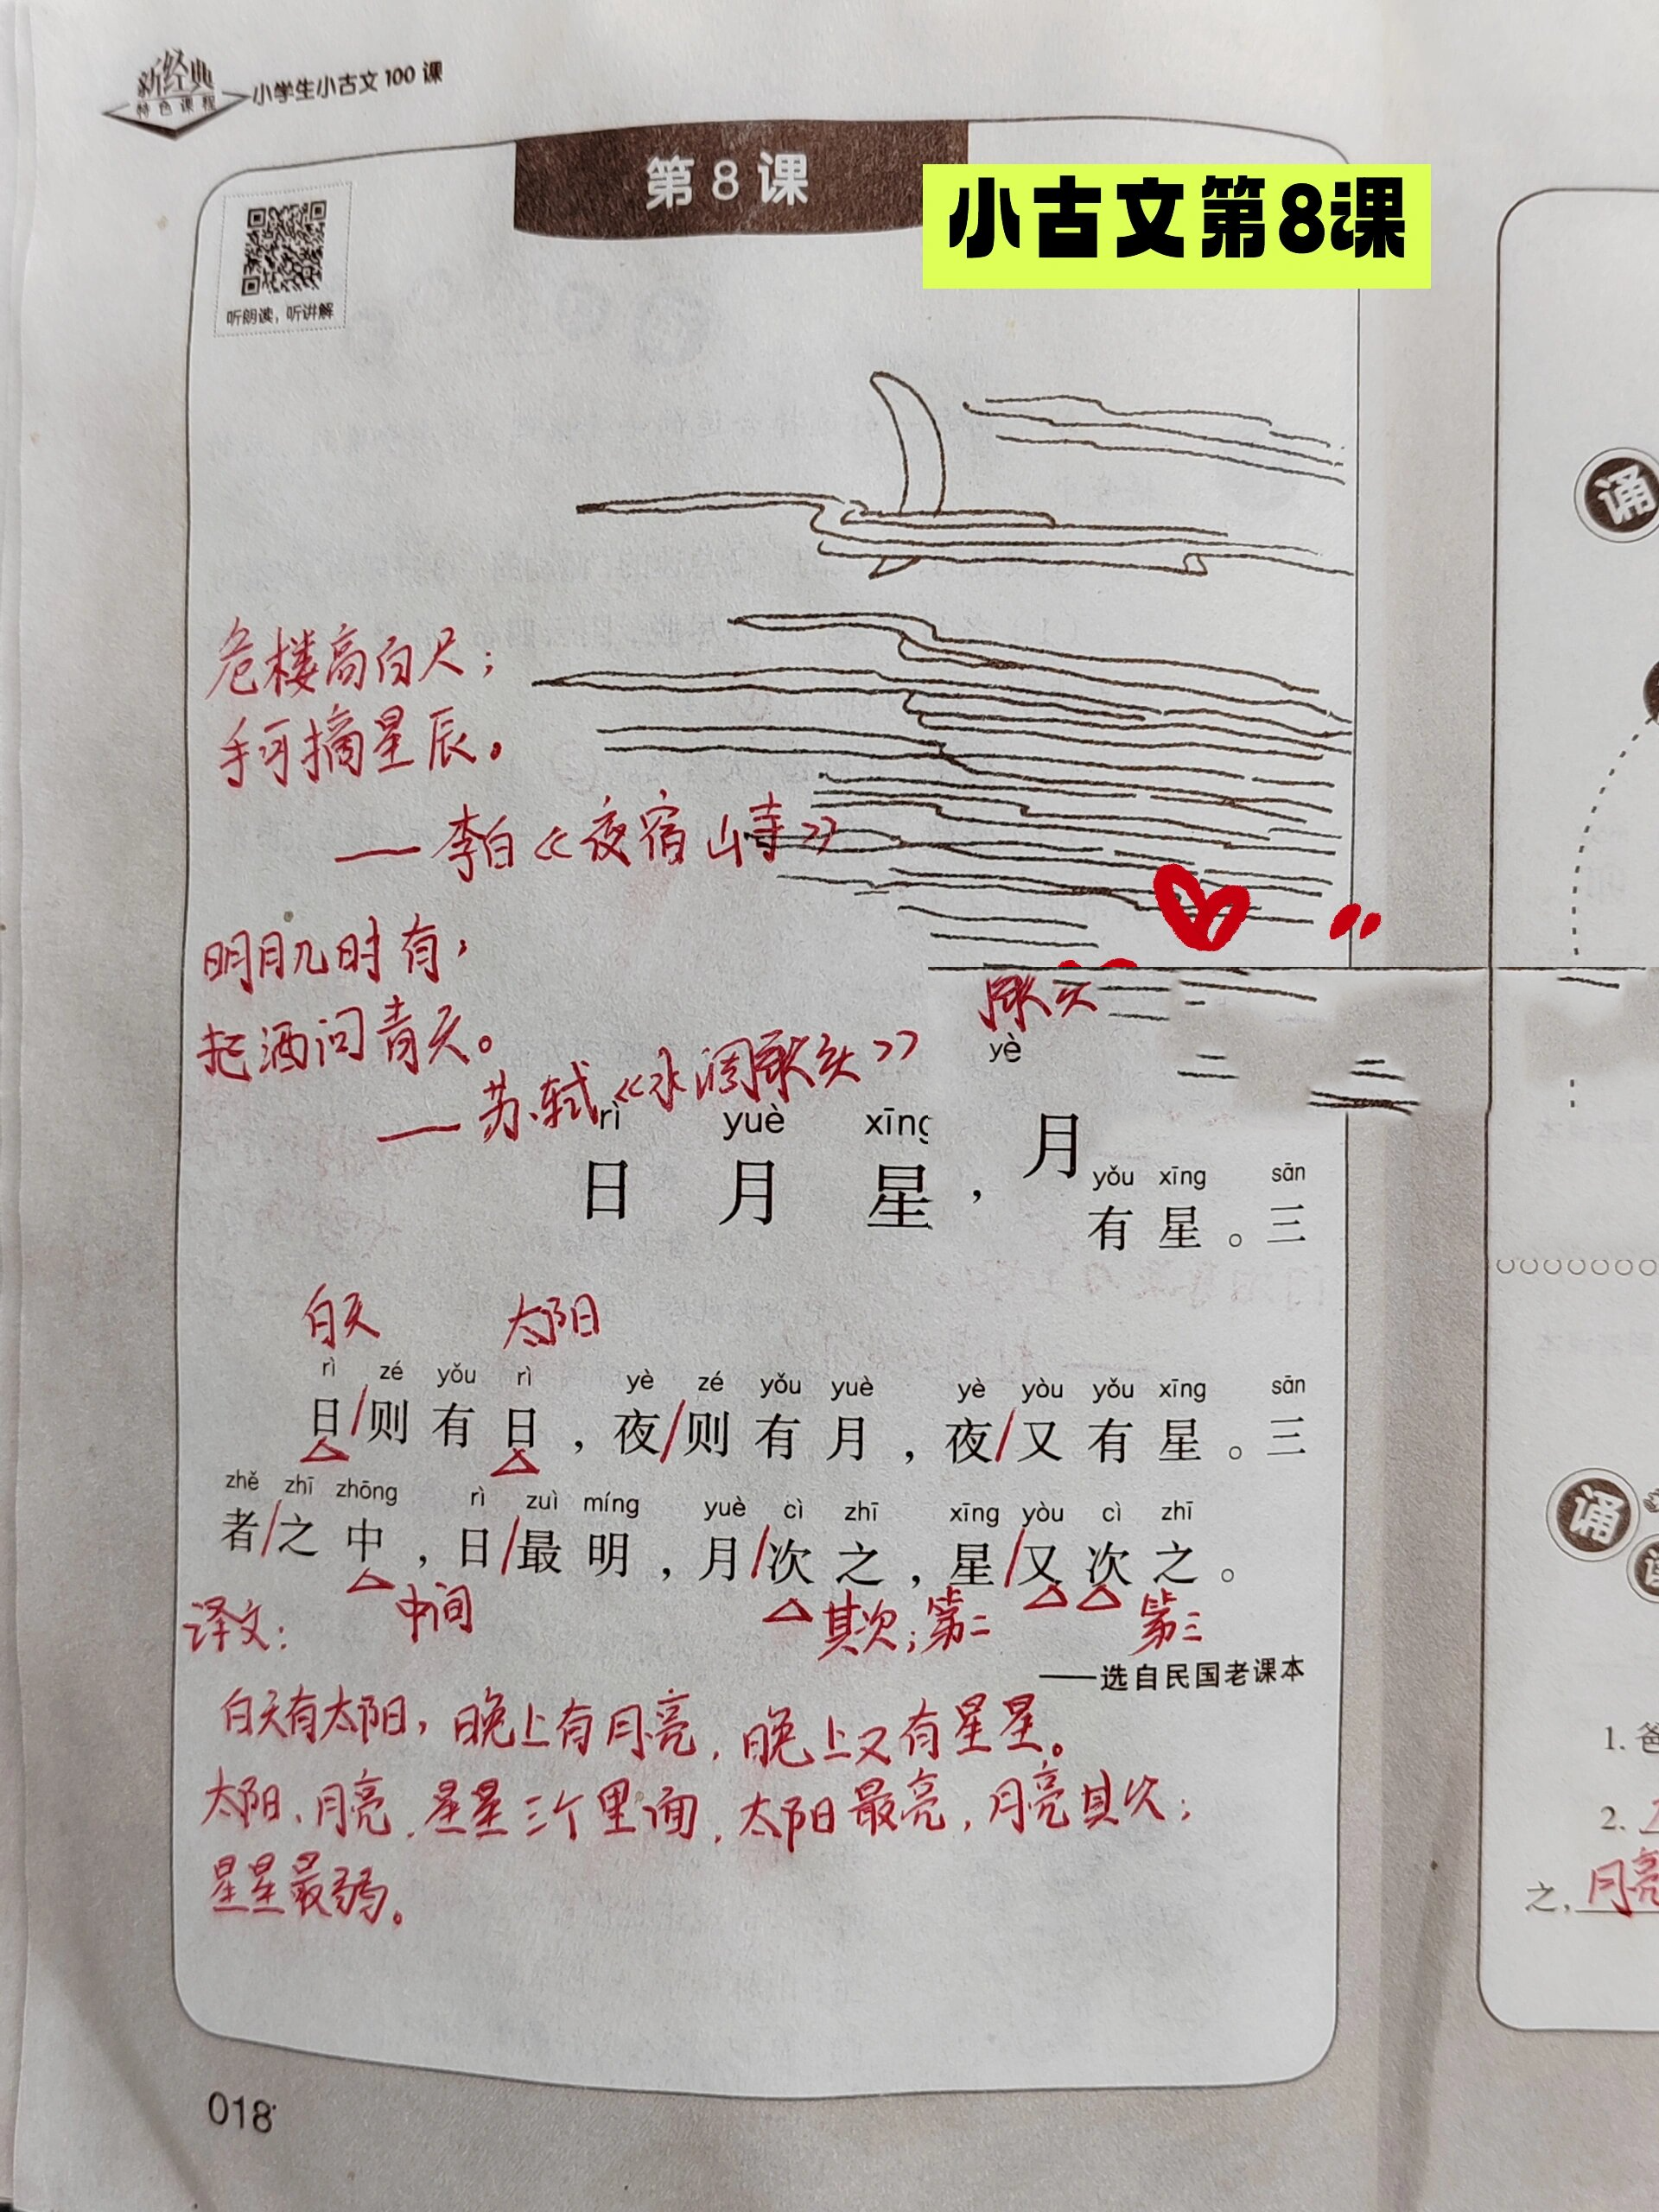 新经典
特色课程
小学生小古文100课
第8课
小古文第8课
听朗读，听讲解
诵
危楼高百尺；
手可摘星辰。
——李白《夜宿山寺》
明月几时有，
把酒问青天。
——苏轼《水调歌头》
yè
rì yuè xīng
日 月 星，月
yǒu xīng sān
有 星。三
白天 太阳
rì zé yǒu rì yè zé yǒu yuè yè yòu yǒu xīng sān
日/则有日，夜/则有月，夜/又有星。三
zhě zhī zhōng rì zuì míng yuè cì zhī xīng yòu cì zhī
者/之中，日/最明，月/次之，星/又次之。
中间 其次；第二 第三
——选自民国老课本
译文：
白天有太阳，晚上有月亮，晚上又有星星。
太阳、月亮、星星三个里面，太阳最亮，月亮其次；
星星最弱。
018
诵
1.
2.
之，月亮